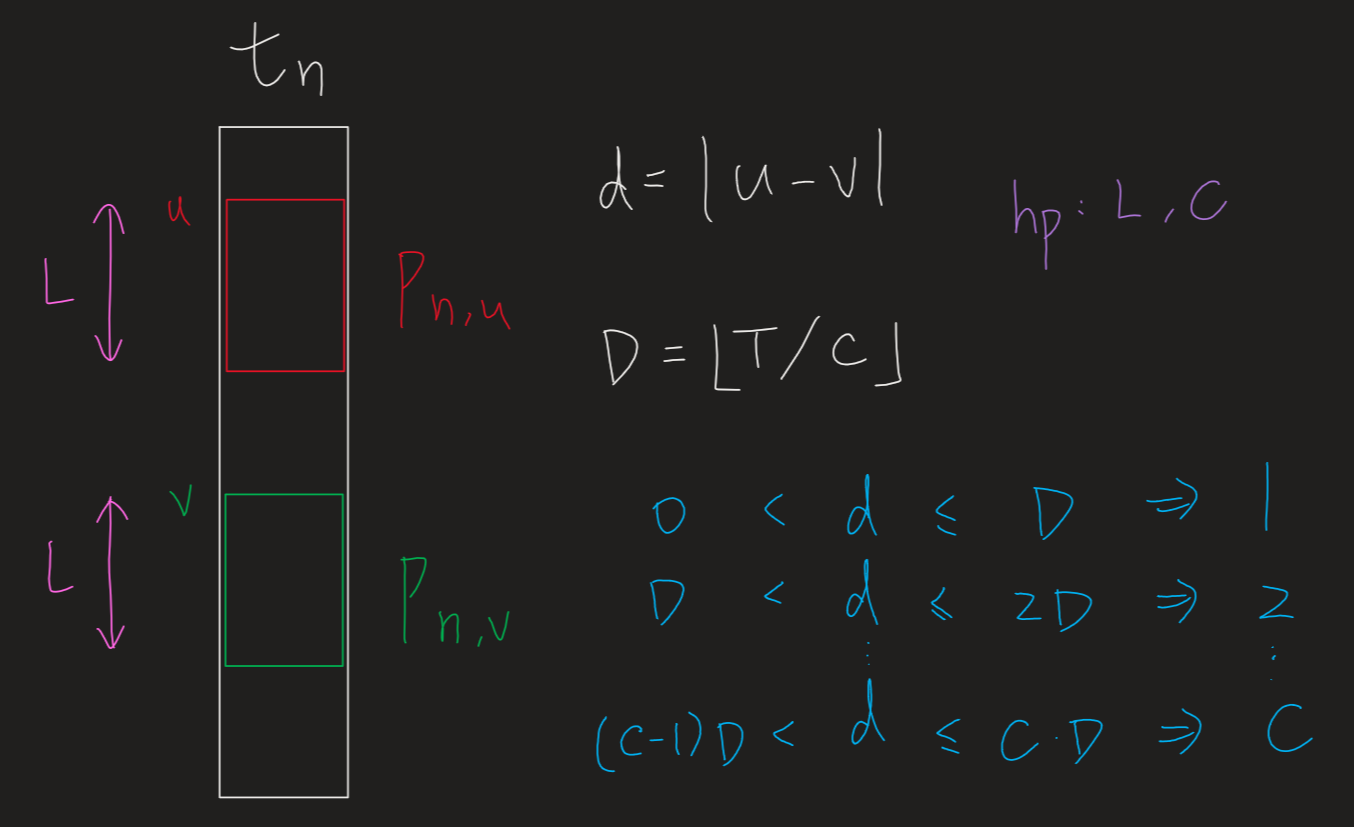 tₙ
u
L
Pₙ,ᵤ
v
L
Pₙ,ᵥ
d = |u - v|
hp: L, C
D = ⌊T/C⌋
0 < d ≤ D ⇒ 1
D < d ≤ 2D ⇒ 2
⋮ ⋮
(C-1)D < d ≤ C·D ⇒ C